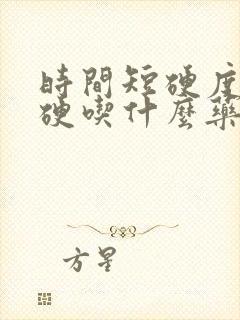 時間短硬度
硬喫什麼藥
方星